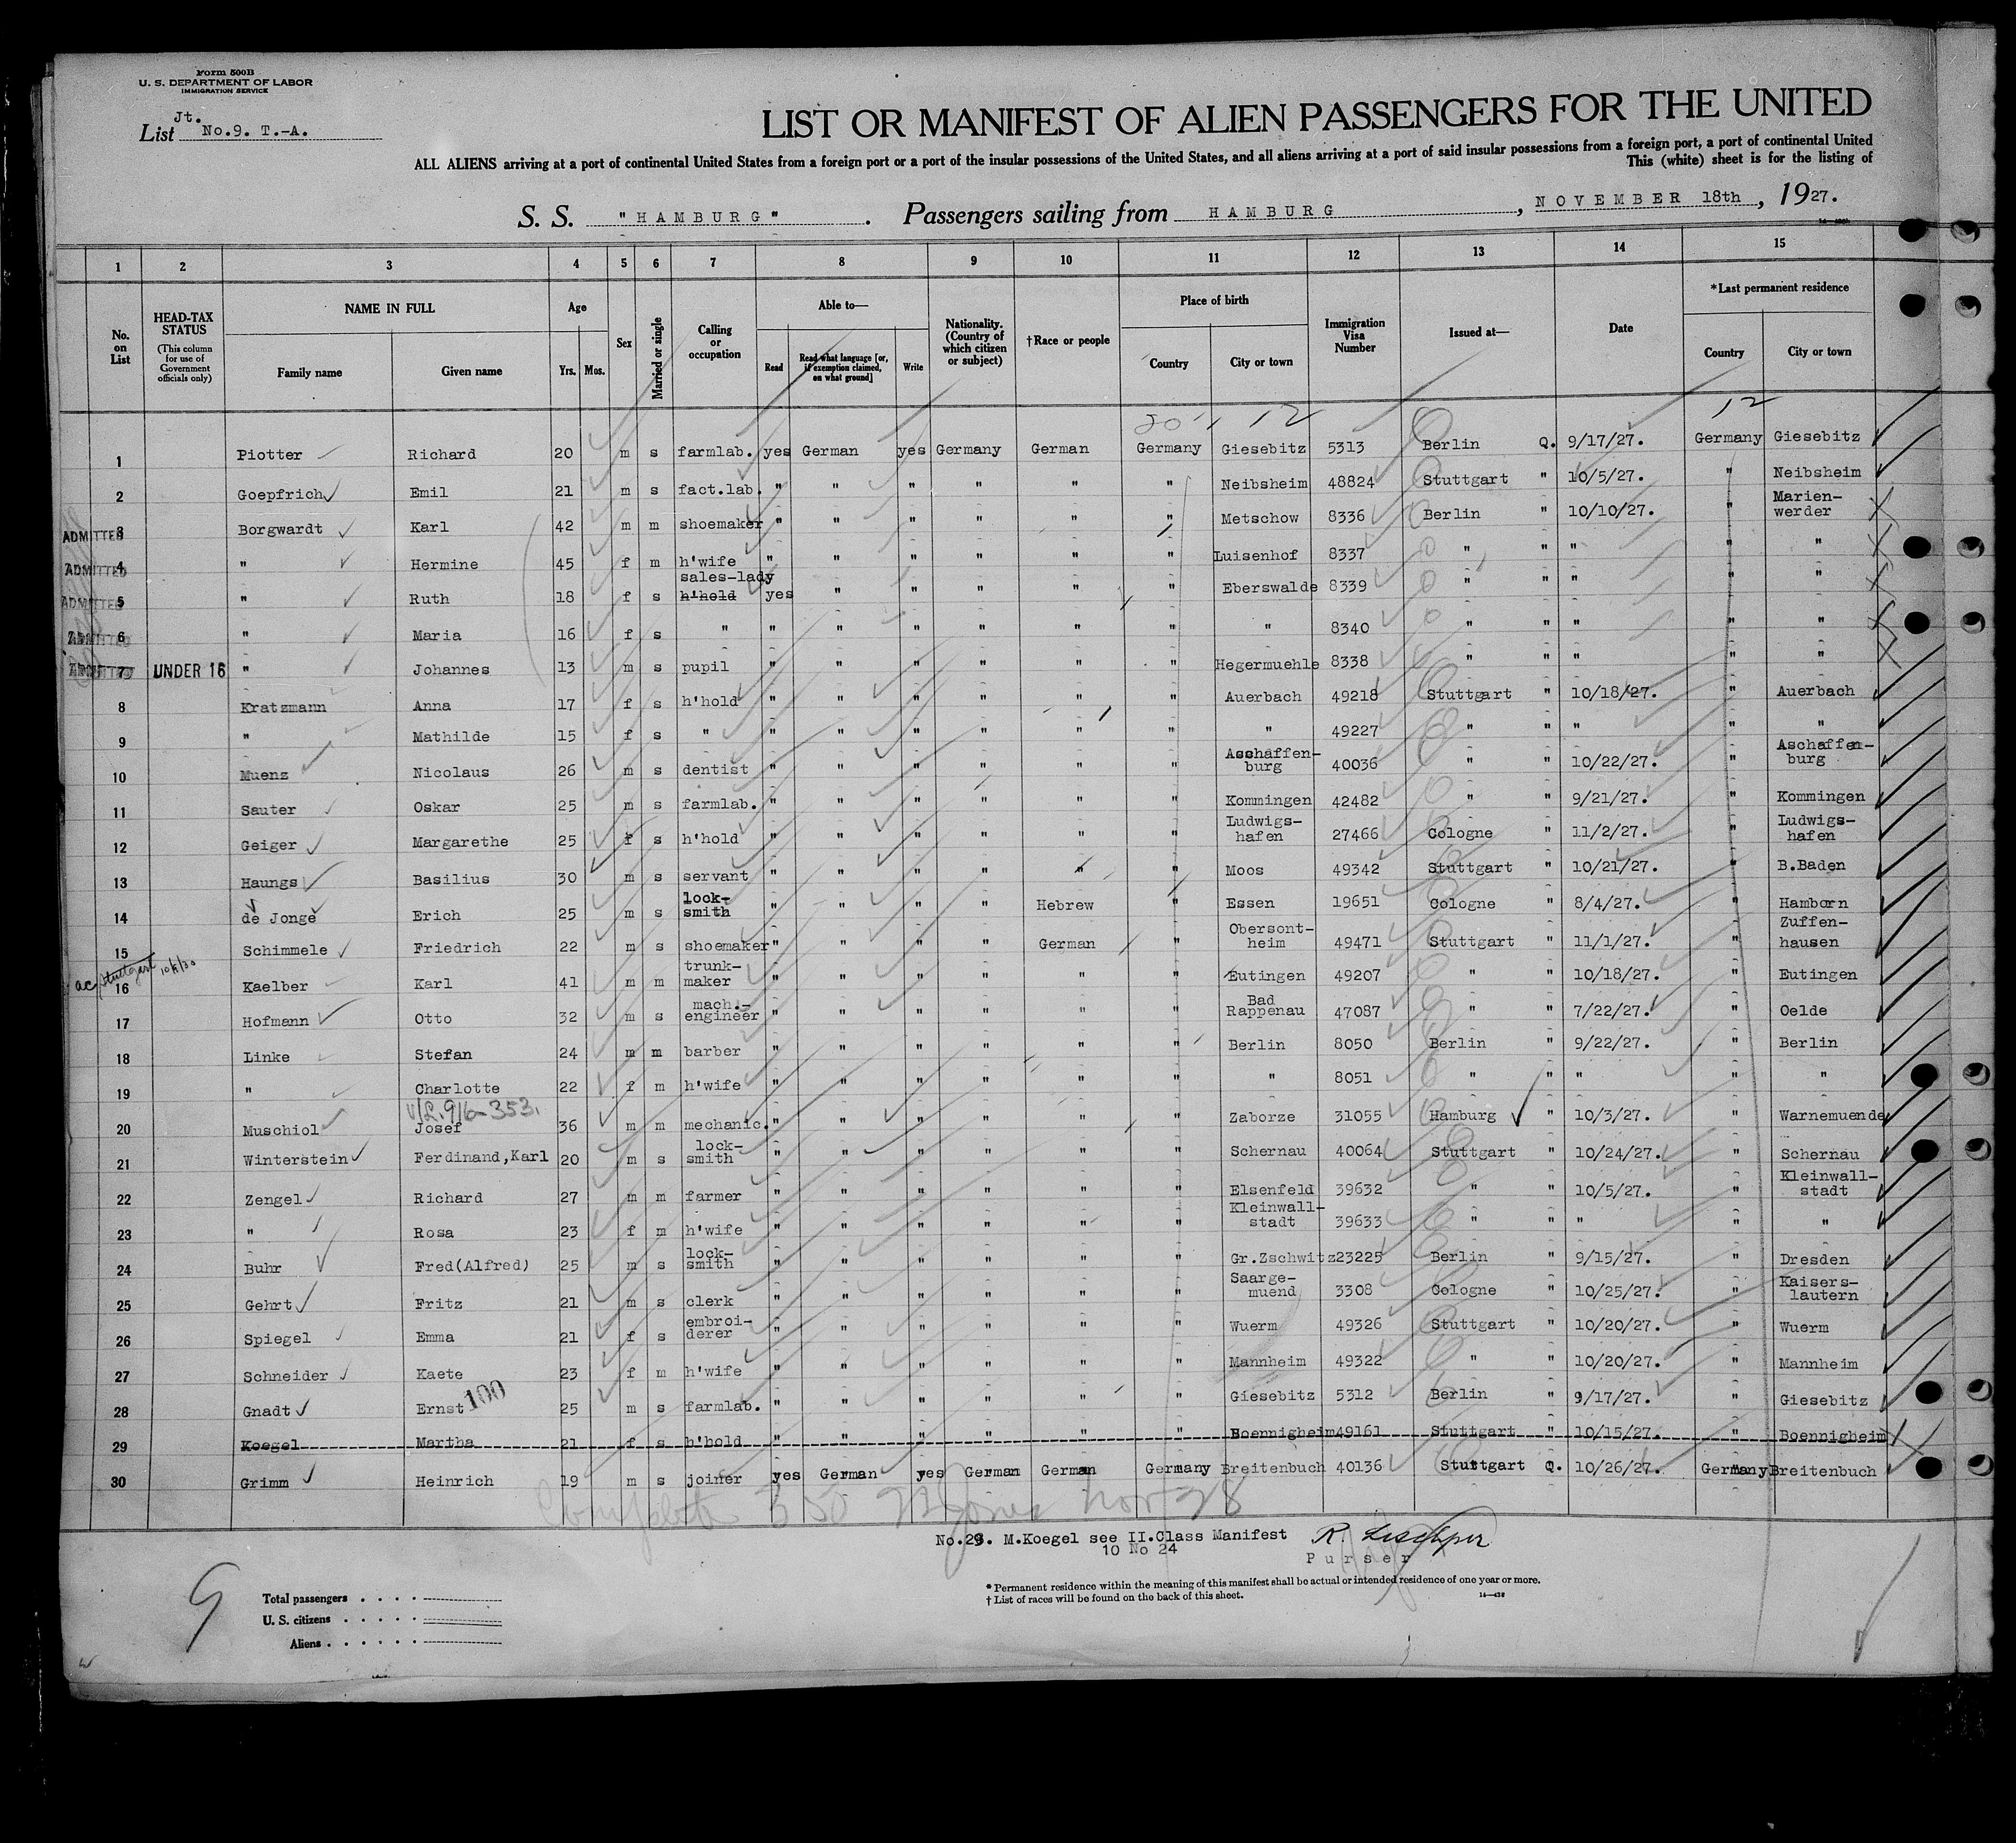 Form 500B
U. S. DEPARTMENT OF LABOR
IMMIGRATION SERVICE
Jt.
List No.9. T.-A.
LIST OR MANIFEST OF ALIEN PASSENGERS FOR THE UNITED
ALL ALIENS arriving at a port of continental United States from a foreign port or a port of the insular possessions of the United States, and all aliens arriving at a port of said insular possessions from a foreign port, a port of continental United
This (white) sheet is for the listing of
S. S. "HAMBURG". Passengers sailing from HAMBURG, NOVEMBER 18th, 1927.
1 2 3 4 5 6 7 8 9 10 11 12 13 14 15
No. on List
HEAD-TAX STATUS (This column for use of Government officials only)
NAME IN FULL
Family name Given name
Age
Yrs. Mos.
Sex
Married or single
Calling or occupation
Able to—
Read Read what language [or, if exemption claimed, on what ground] Write
Nationality. (Country of which citizen or subject)
†Race or people
Place of birth
Country City or town
Immigration Visa Number
Issued at—
Date
*Last permanent residence
Country City or town
12 12
1 Piotter Richard 20 m s farmlab. yes German yes Germany German Germany Giesebitz 5313 Berlin Q. 9/17/27. Germany Giesebitz
2 Goepfrich Emil 21 m s fact.lab. " " " " " " Neibsheim 48824 Stuttgart " 10/5/27. " Neibsheim
ADMITTED 3 Borgwardt Karl 42 m m shoemaker " " " " " " Metschow 8336 Berlin " 10/10/27. " Marien-werder
ADMITTED 4 " Hermine 45 f m h'wife " " " " " " Luisenhof 8337 " " " " "
ADMITTED 5 " Ruth 18 f s sales-lady h'hold yes " " " " " Eberswalde 8339 " " " " "
ADMITTED 6 " Maria 16 f s " " " " " " " " 8340 " " " " "
ADMITTED 7 UNDER 16 " Johannes 13 m s pupil " " " " " " Hegermuehle 8338 " " " " "
8 Kratzmann Anna 17 f s h'hold " " " " " " Auerbach 49218 Stuttgart " 10/18/27. " Auerbach
9 " Mathilde 15 f s " " " " " " " " 49227 " " " " "
10 Muenz Nicolaus 26 m s dentist " " " " " " Aschaffen-burg 40036 " " 10/22/27. " Aschaffen-burg
11 Sauter Oskar 25 m s farmlab. " " " " " " Kommingen 42482 " " 9/21/27. " Kommingen
12 Geiger Margarethe 25 f s h'hold " " " " " " Ludwigs-hafen 27466 Cologne " 11/2/27. " Ludwigs-hafen
13 Haungs Basilius 30 m s servant " " " " " " Moos 49342 Stuttgart " 10/21/27. " B.Baden
14 de Jonge Erich 25 m s lock-smith " " " " Hebrew " Essen 19651 Cologne " 8/4/27. " Hamborn
15 Schimmele Friedrich 22 m s shoemaker " " " " German " Obersont-heim 49471 Stuttgart " 11/1/27. " Zuffen-hausen
ac Stuttgart 10/1/30
16 Kaelber Karl 41 m m trunk-maker " " " " " " Eutingen 49207 " " 10/18/27. " Eutingen
17 Hofmann Otto 32 m s mach.-engineer " " " " " " Bad Rappenau 47087 " " 7/22/27. " Oelde
18 Linke Stefan 24 m m barber " " " " " " Berlin 8050 Berlin " 9/22/27. " Berlin
19 " Charlotte 22 f m h'wife " " " " " " " 8051 " " " " "
V/L.916-353.
20 Muschiol Josef 36 m m mechanic. " " " " " " Zaborze 31055 Hamburg " 10/3/27. " Warnemuende
21 Winterstein Ferdinand,Karl 20 m s lock-smith " " " " " " Schernau 40064 Stuttgart " 10/24/27. " Schernau
22 Zengel Richard 27 m m farmer " " " " " " Elsenfeld 39632 " " 10/5/27. " Kleinwall-stadt
23 " Rosa 23 f m h'wife " " " " " " Kleinwall-stadt 39633 " " " " "
24 Buhr Fred(Alfred) 25 m s lock-smith " " " " " " Gr.Zschwitz 23225 Berlin " 9/15/27. " Dresden
25 Gehrt Fritz 21 m s clerk " " " " " " Saarge-muend 3308 Cologne " 10/25/27. " Kaisers-lautern
26 Spiegel Emma 21 f s embroi-derer " " " " " " Wuerm 49326 Stuttgart " 10/20/27. " Wuerm
27 Schneider Kaete 23 f m h'wife " " " " " " Mannheim 49322 " " 10/20/27. " Mannheim
28 Gnadt Ernst 100 25 m s farmlab. " " " " " " Giesebitz 5312 Berlin " 9/17/27. " Giesebitz
29 Koegel Martha 21 f s h'hold " " " " " " Boennigheim 49161 Stuttgart " 10/15/27. " Boennigheim
30 Grimm Heinrich 19 m s joiner yes German yes German German Germany Breitenbuch 40136 Stuttgart Q. 10/26/27. Germany Breitenbuch
No.29. M.Koegel see II.Class Manifest
10 No 24
Purser
Total passengers
U. S. citizens
Aliens
* Permanent residence within the meaning of this manifest shall be actual or intended residence of one year or more.
† List of races will be found on the back of this sheet.